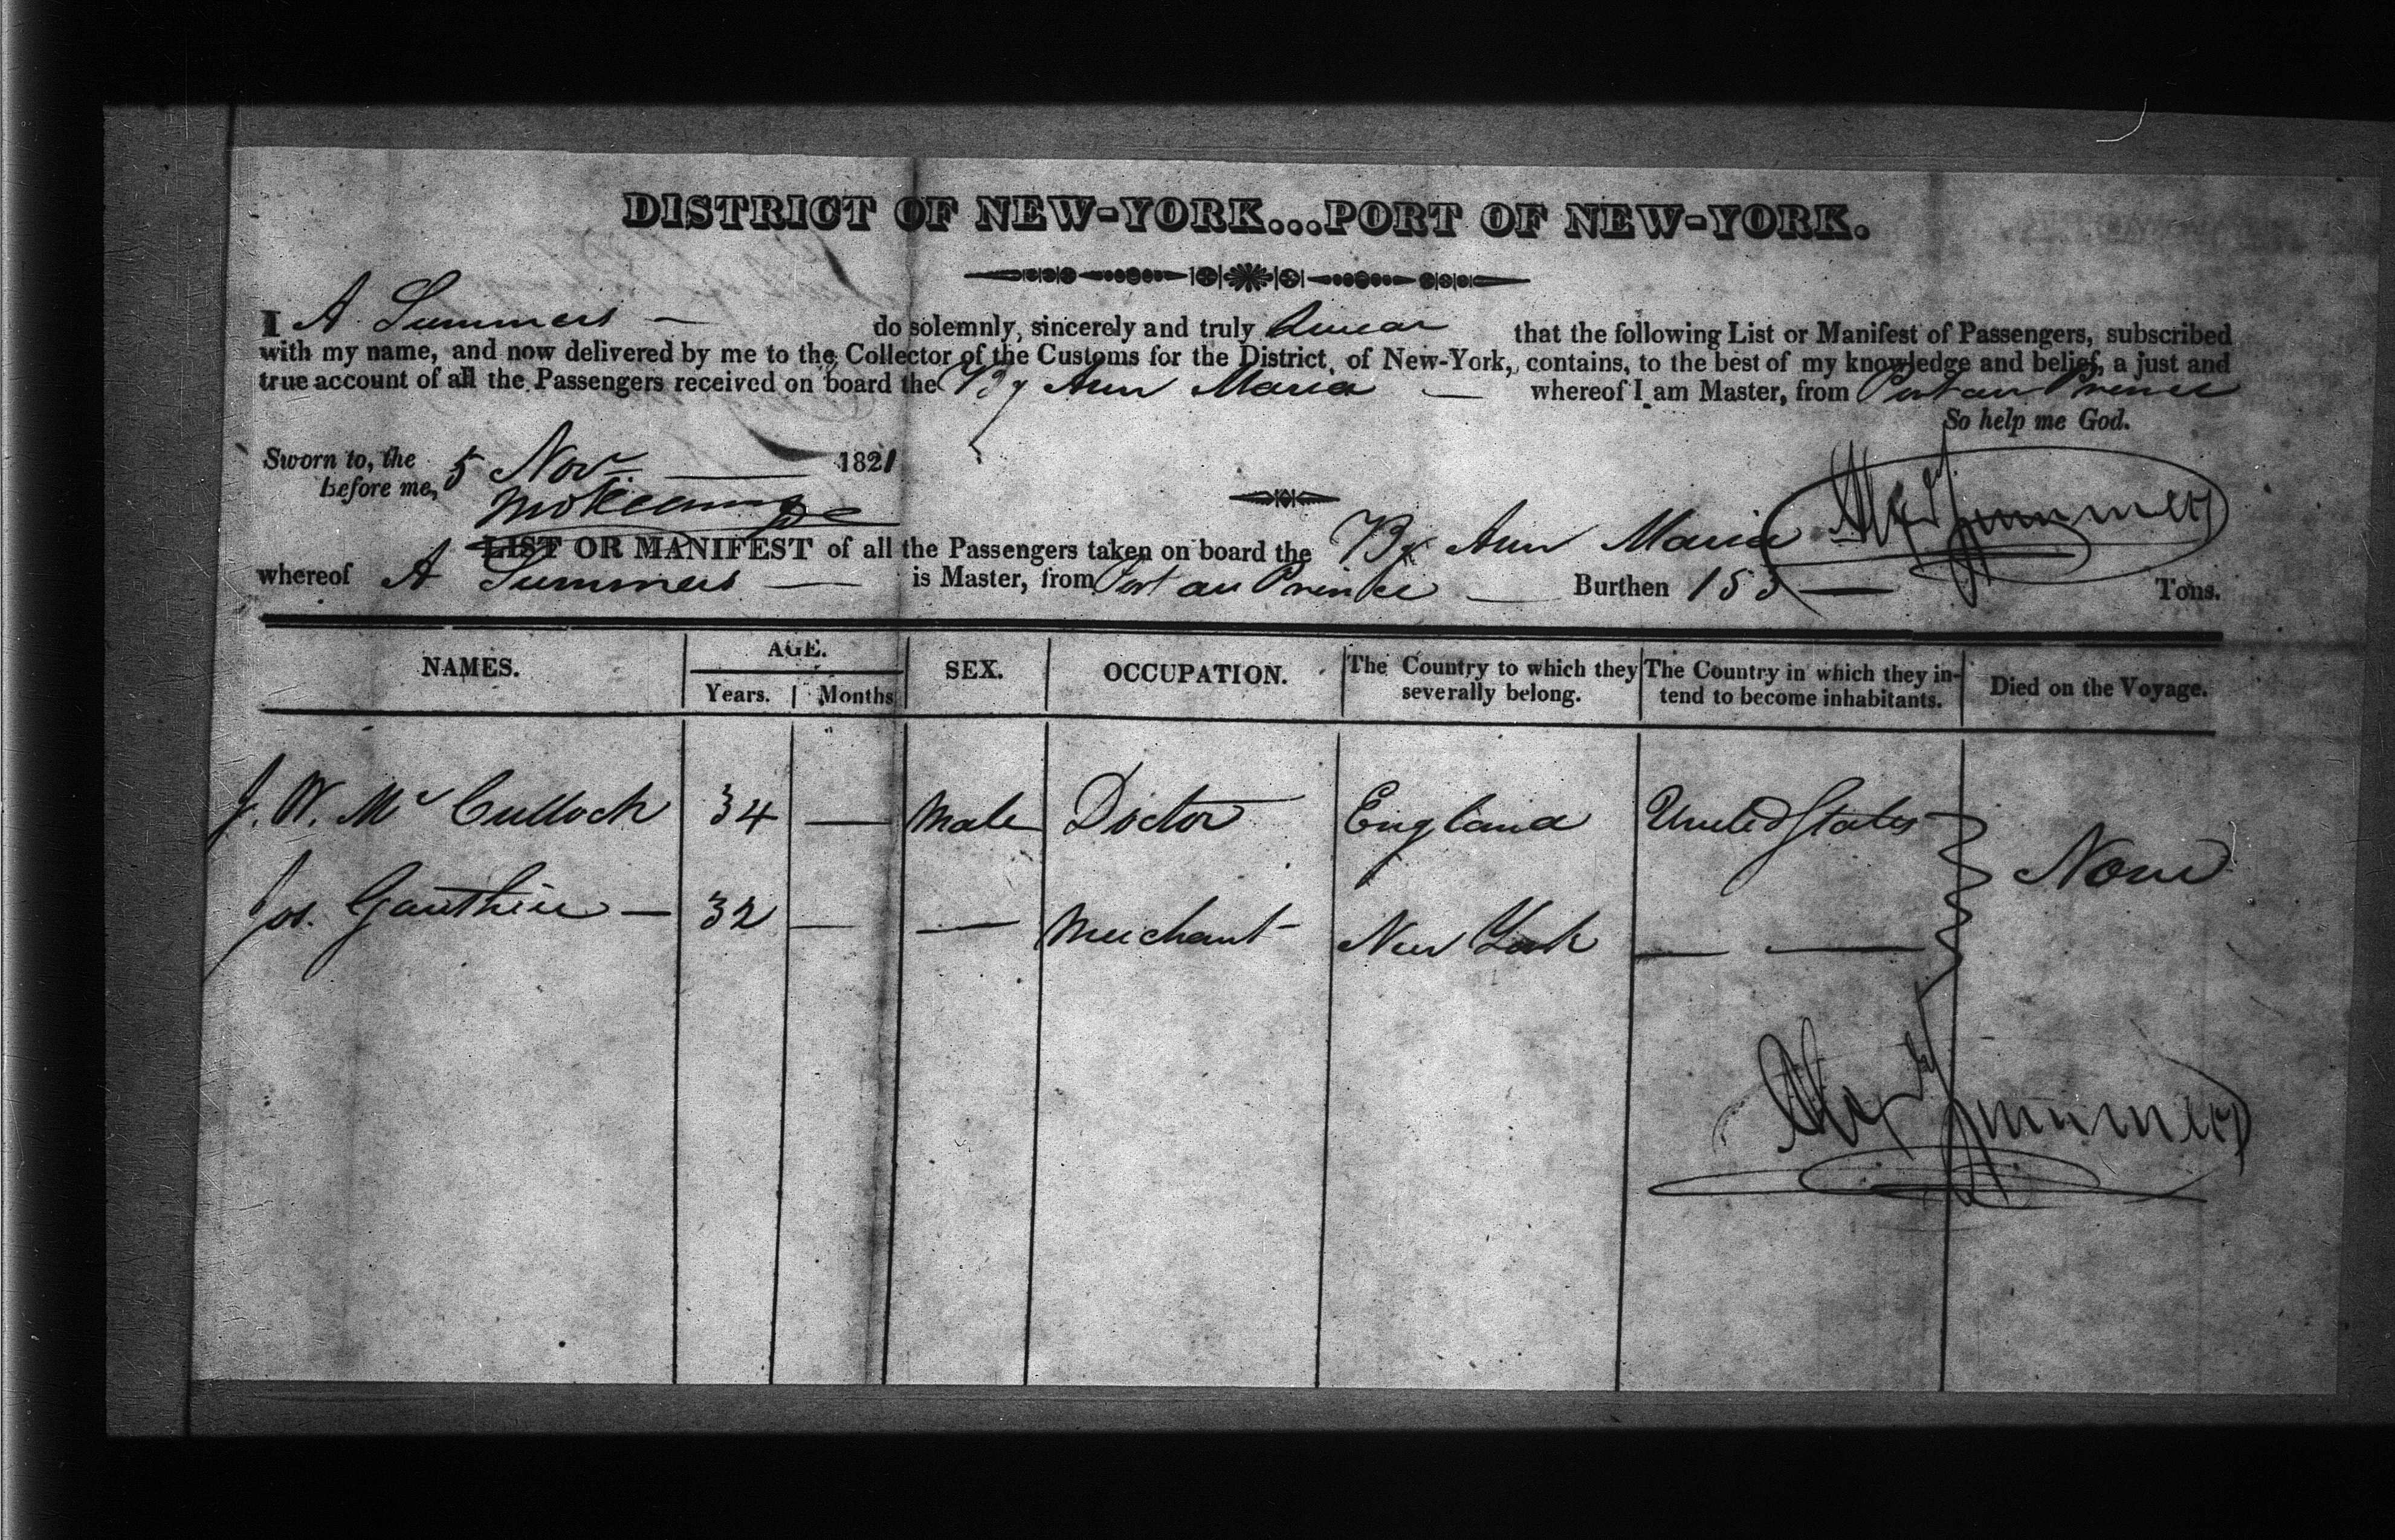 DISTRICT OF NEW-YORK...PORT OF NEW-YORK.
I A Summers — do solemnly, sincerely and truly Swear that the following List or Manifest of Passengers, subscribed
with my name, and now delivered by me to the Collector of the Customs for the District of New-York, contains, to the best of my knowledge and belief, a just and
true account of all the Passengers received on board the Bg Ann Maria — whereof I am Master, from Port au Prince
So help me God.
Sworn to, the 5 Nov. — 1821
before me,
Alexr Summers
LIST OR MANIFEST of all the Passengers taken on board the Bg Ann Maria
whereof A Summers — is Master, from Port au Prince — Burthen 153 — Tons.
NAMES. AGE. SEX. OCCUPATION. The Country to which they severally belong. The Country in which they intend to become inhabitants. Died on the Voyage.
Years. Months
J. W. Mc Culloch 34 — Male Doctor England United States
None
Jos. Gauthier — 32 — — Merchant New York — —
Alexr Summers